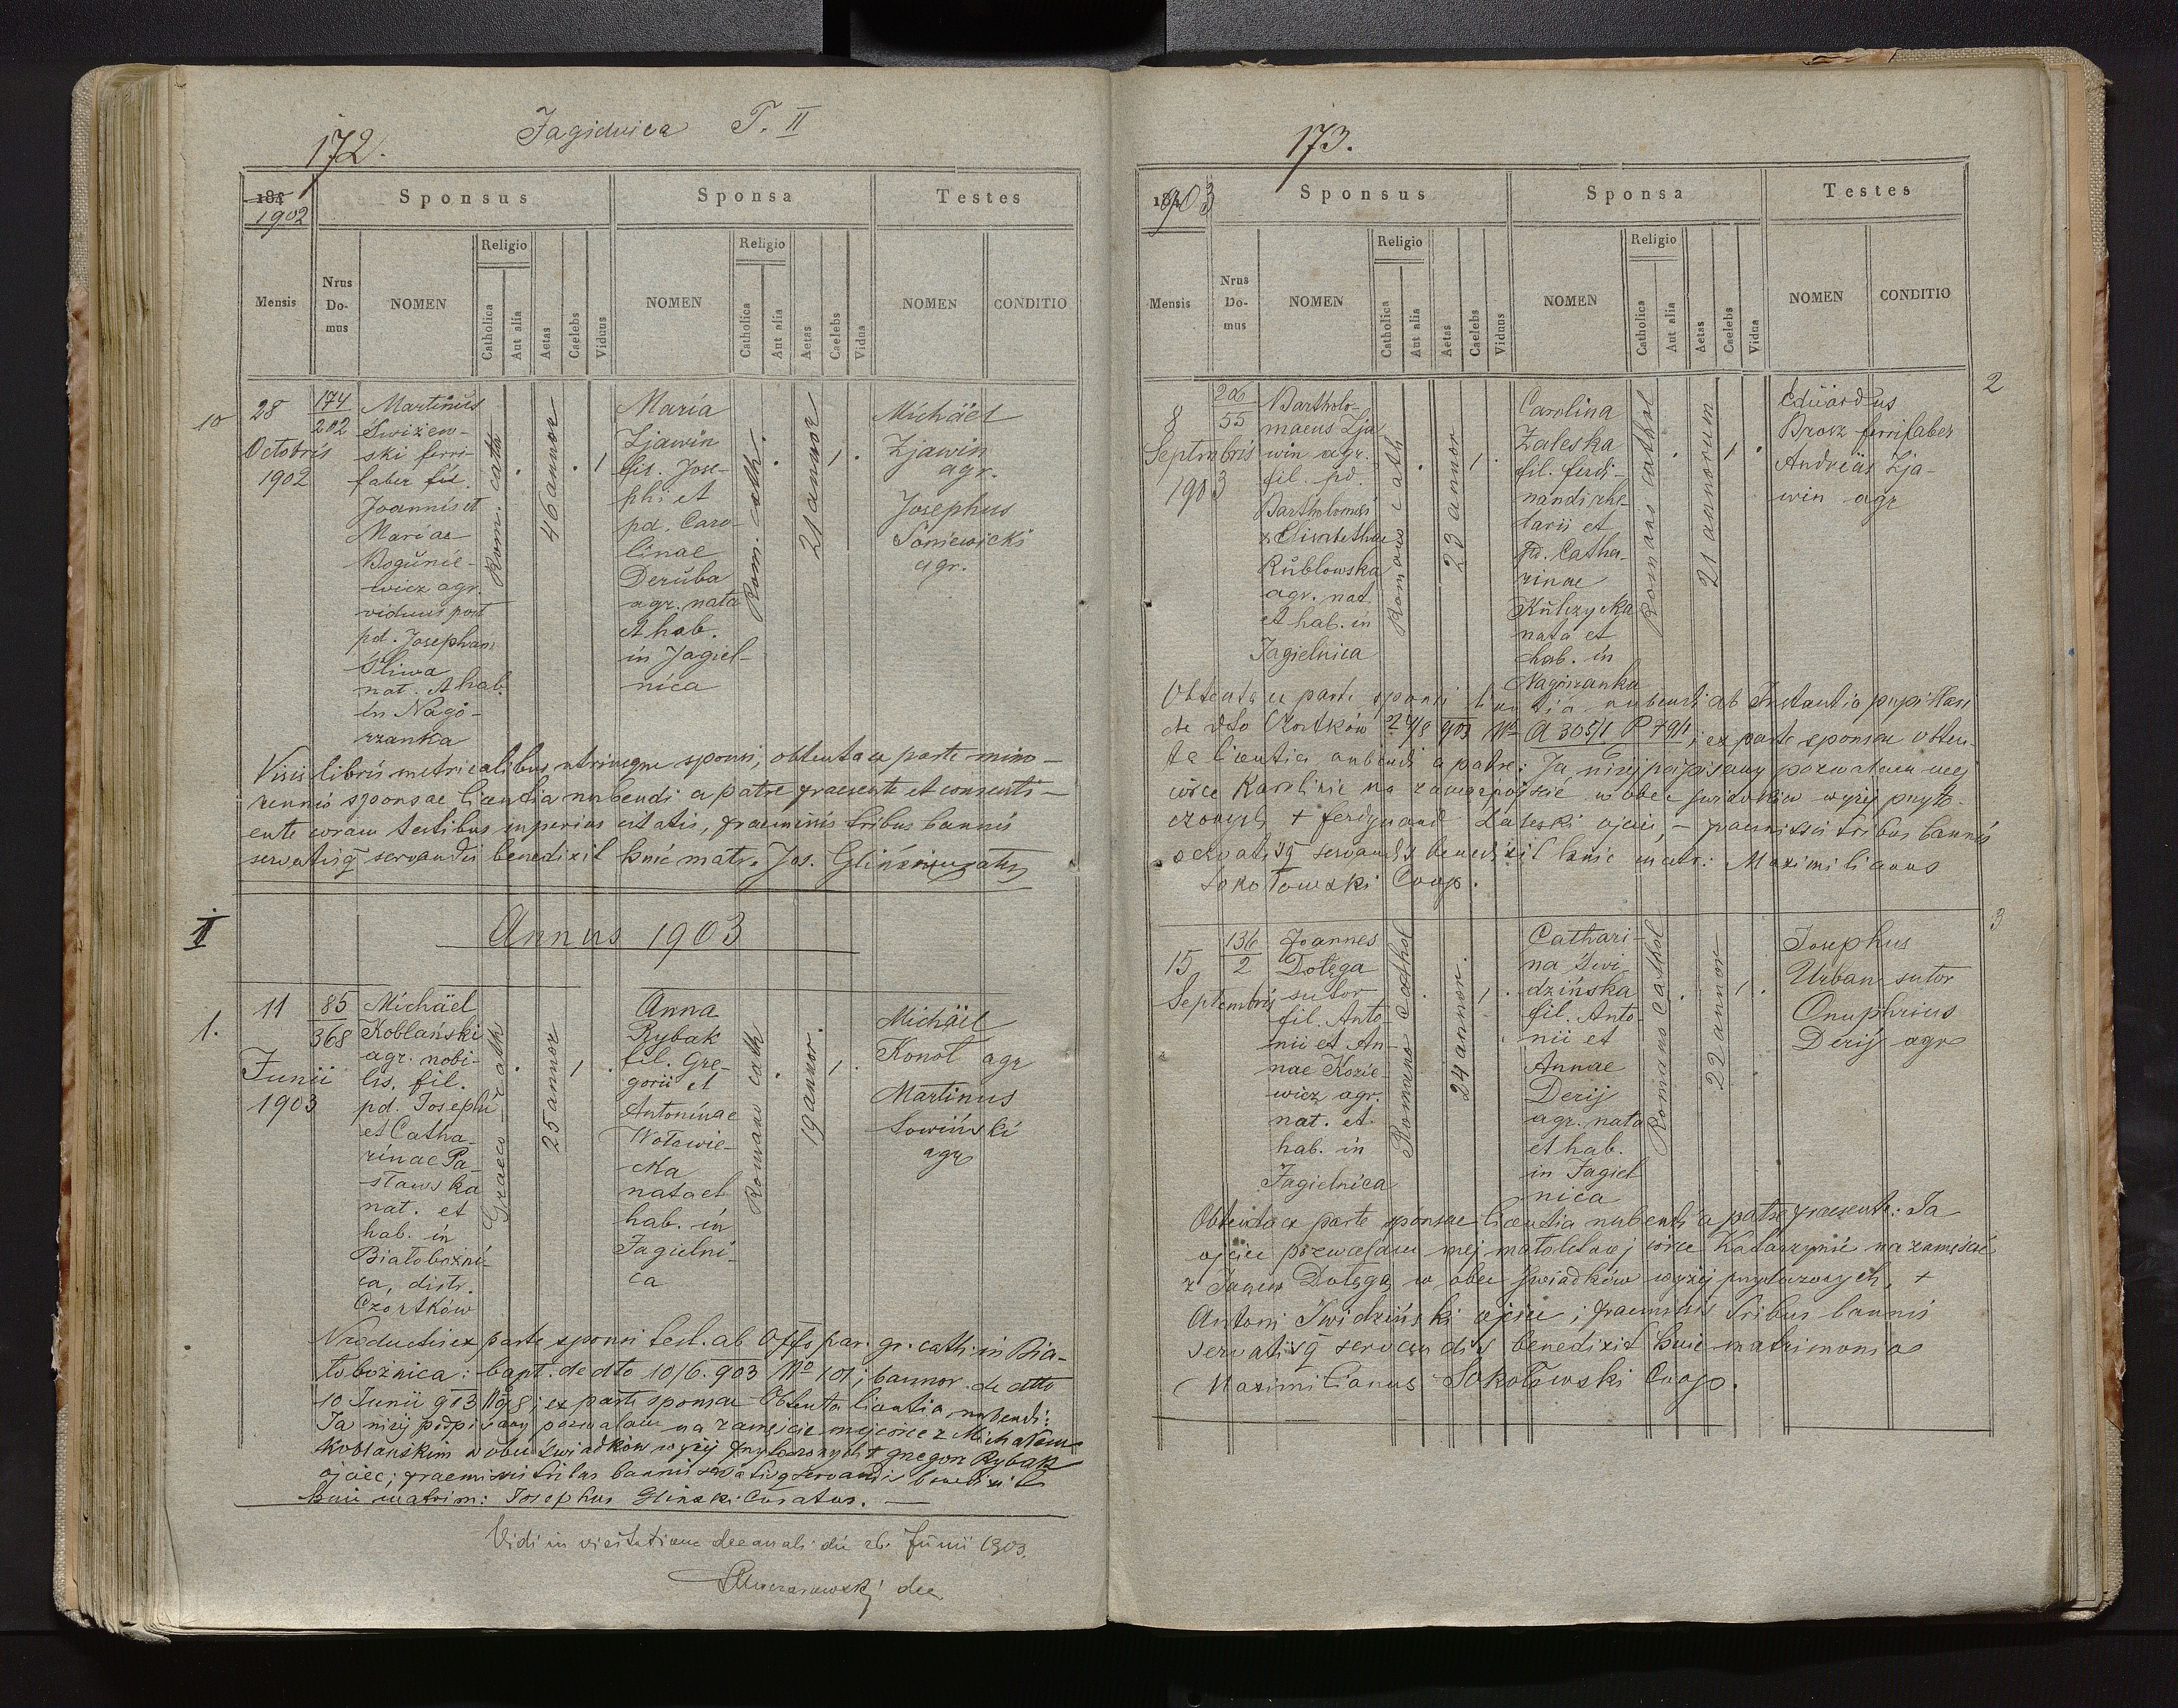 172.
Jagielnica T. II
184
1902
Sponsus
Sponsa
Testes
Mensis
Nrus Domus
NOMEN
Religio
Catholica
Aut alia
Aetas
Caelebs
Viduus
NOMEN
Religio
Catholica
Aut alia
Aetas
Caelebs
Vidua
NOMEN
CONDITIO
10
28
Octobris
1902
174
202
Martinus
Świżew-
ski ferri-
faber fil.
Joannis et
Mariae
Bogunie-
wicz agr.
viduus post
pd. Josepham
Śliwa
nat. et hab.
in Nagó-
rzanka
Rom. cath.
46 annor
1
Maria
Zjawin
fil. Jose-
phi et
pd. Caro-
linae
Deruba
agr. nata
et hab.
in Jagiel-
nica
Rom. cath.
21 annor
1.
Michäel
Zjawin
agr.
Josephus
Saniewicki
agr.
Visis libris metricalibus utriusque sponsi, obtenta ex parte mino-
rennis sponsae licentia nubendi a patre praesente et consenti-
ente coram testibus superius citatis, praemissis tribus bannis
servatisq servandis benedixit huic matr. Jos. Gliński curatus
II
Annus 1903
1.
11
Junii
1903
85
368
Michäel
Koblański
agr. nobi-
lis, fil.
pd. Josephi
et Catha-
rinae Pa-
sławska
nat. et
hab. in
Białobożni-
ca, distr.
Czortków
Graeco-cath
25 annor
1
Anna
Rybak
fil. Gre-
gorii et
Antoninae
Wołowie-
cka
nata et
hab. in
Jagielni-
ca
Romano cath
19 annor.
1.
Michäel
Konot agr
Martinus
Łowiński
agr
Productis ex parte sponsi test. ab Offo par. gr. cath. in Bia-
łobożnica: bapt. de dto 10/6. 903 No 101; bannor. de dtto
10 Junii 903 No 98; ex parte sponsae obtenta licentia nubendi:
Ja niżej podpisany pozwalam na zamęście mej córce z Michałem
Koblańskim w obec świadków wyżej przytoczonych + Gregorz Rybak
ojciec; praemissis tribus bannis servatisq servandis benedixit
huic matrim: Josephus Gliński Curatus.
Vidi in visitatione decanali die 26. Junii 1903.
dec
173.
184
1903
Sponsus
Sponsa
Testes
Mensis
Nrus Domus
NOMEN
Religio
Catholica
Aut alia
Aetas
Caelebs
Viduus
NOMEN
Religio
Catholica
Aut alia
Aetas
Caelebs
Vidua
NOMEN
CONDITIO
2
8
Septembris
1903
206
55
Bartholo-
maeus Zja
win agr.
fil. pd.
Bartholomaei
& Elisabethae
Rublowska
agr. nat.
et hab. in
Jagielnica
Romano cath
23 annor
1.
Carolina
Zaleska
fil. Ferdi-
nandi
larii et
pd. Catha-
rinae
Kulczycka
nata et
hab. in
Nagórzanka
Romano cathol
21 annorum
1.
Eduardus
Brosz ferrifaber
Andreas Zja-
win agr
Obtenta ex parte sponsi licentia nubendi ab Instantia pupillari
de dto Czortków 24/8 903 No A 305/1 P 79/1; ex parte sponsae obten-
ta licentia nubendi a patre: Ja niżej podpisany pozwalam mej
córce Karolinie na zamąż pójście w obec świadków wyżej przyto-
czonych + Ferdynand Zaleski ojciec, - praemissis tribus bannis
servatisq servandis benedixit huic matr: Maximilianus
Sokołowski Coop.
3
15
Septembris
136
2
Joannes
Dołęga
sutor
fil. Anto-
nii et An-
nae Kozie-
wicz agr.
nat. et
hab. in
Jagielnica
Romano cathol
24 annor.
1.
Cathari-
na Świ-
dzińska
fil. Anto-
nii et
Annae
Derij
agr. nata
et hab.
in Jagiel
nica
Romano cathol
22 annor
1.
Josephus
Urban sutor
Onuphrius
Derij agr
Obtenta ex parte sponsae licentia nubendi a patre praesente: Ja
ojciec pozwalam mej małoletniej córce Katarzynie na zamęście
z Janem Dołęgą w obec świadków wyżej przytoczonych, +
Antoni Świdziński ojciec; praemissis tribus bannis
servatisq servandis benedixit huic matrimonio
Maximilianus Sokołowski Coop.